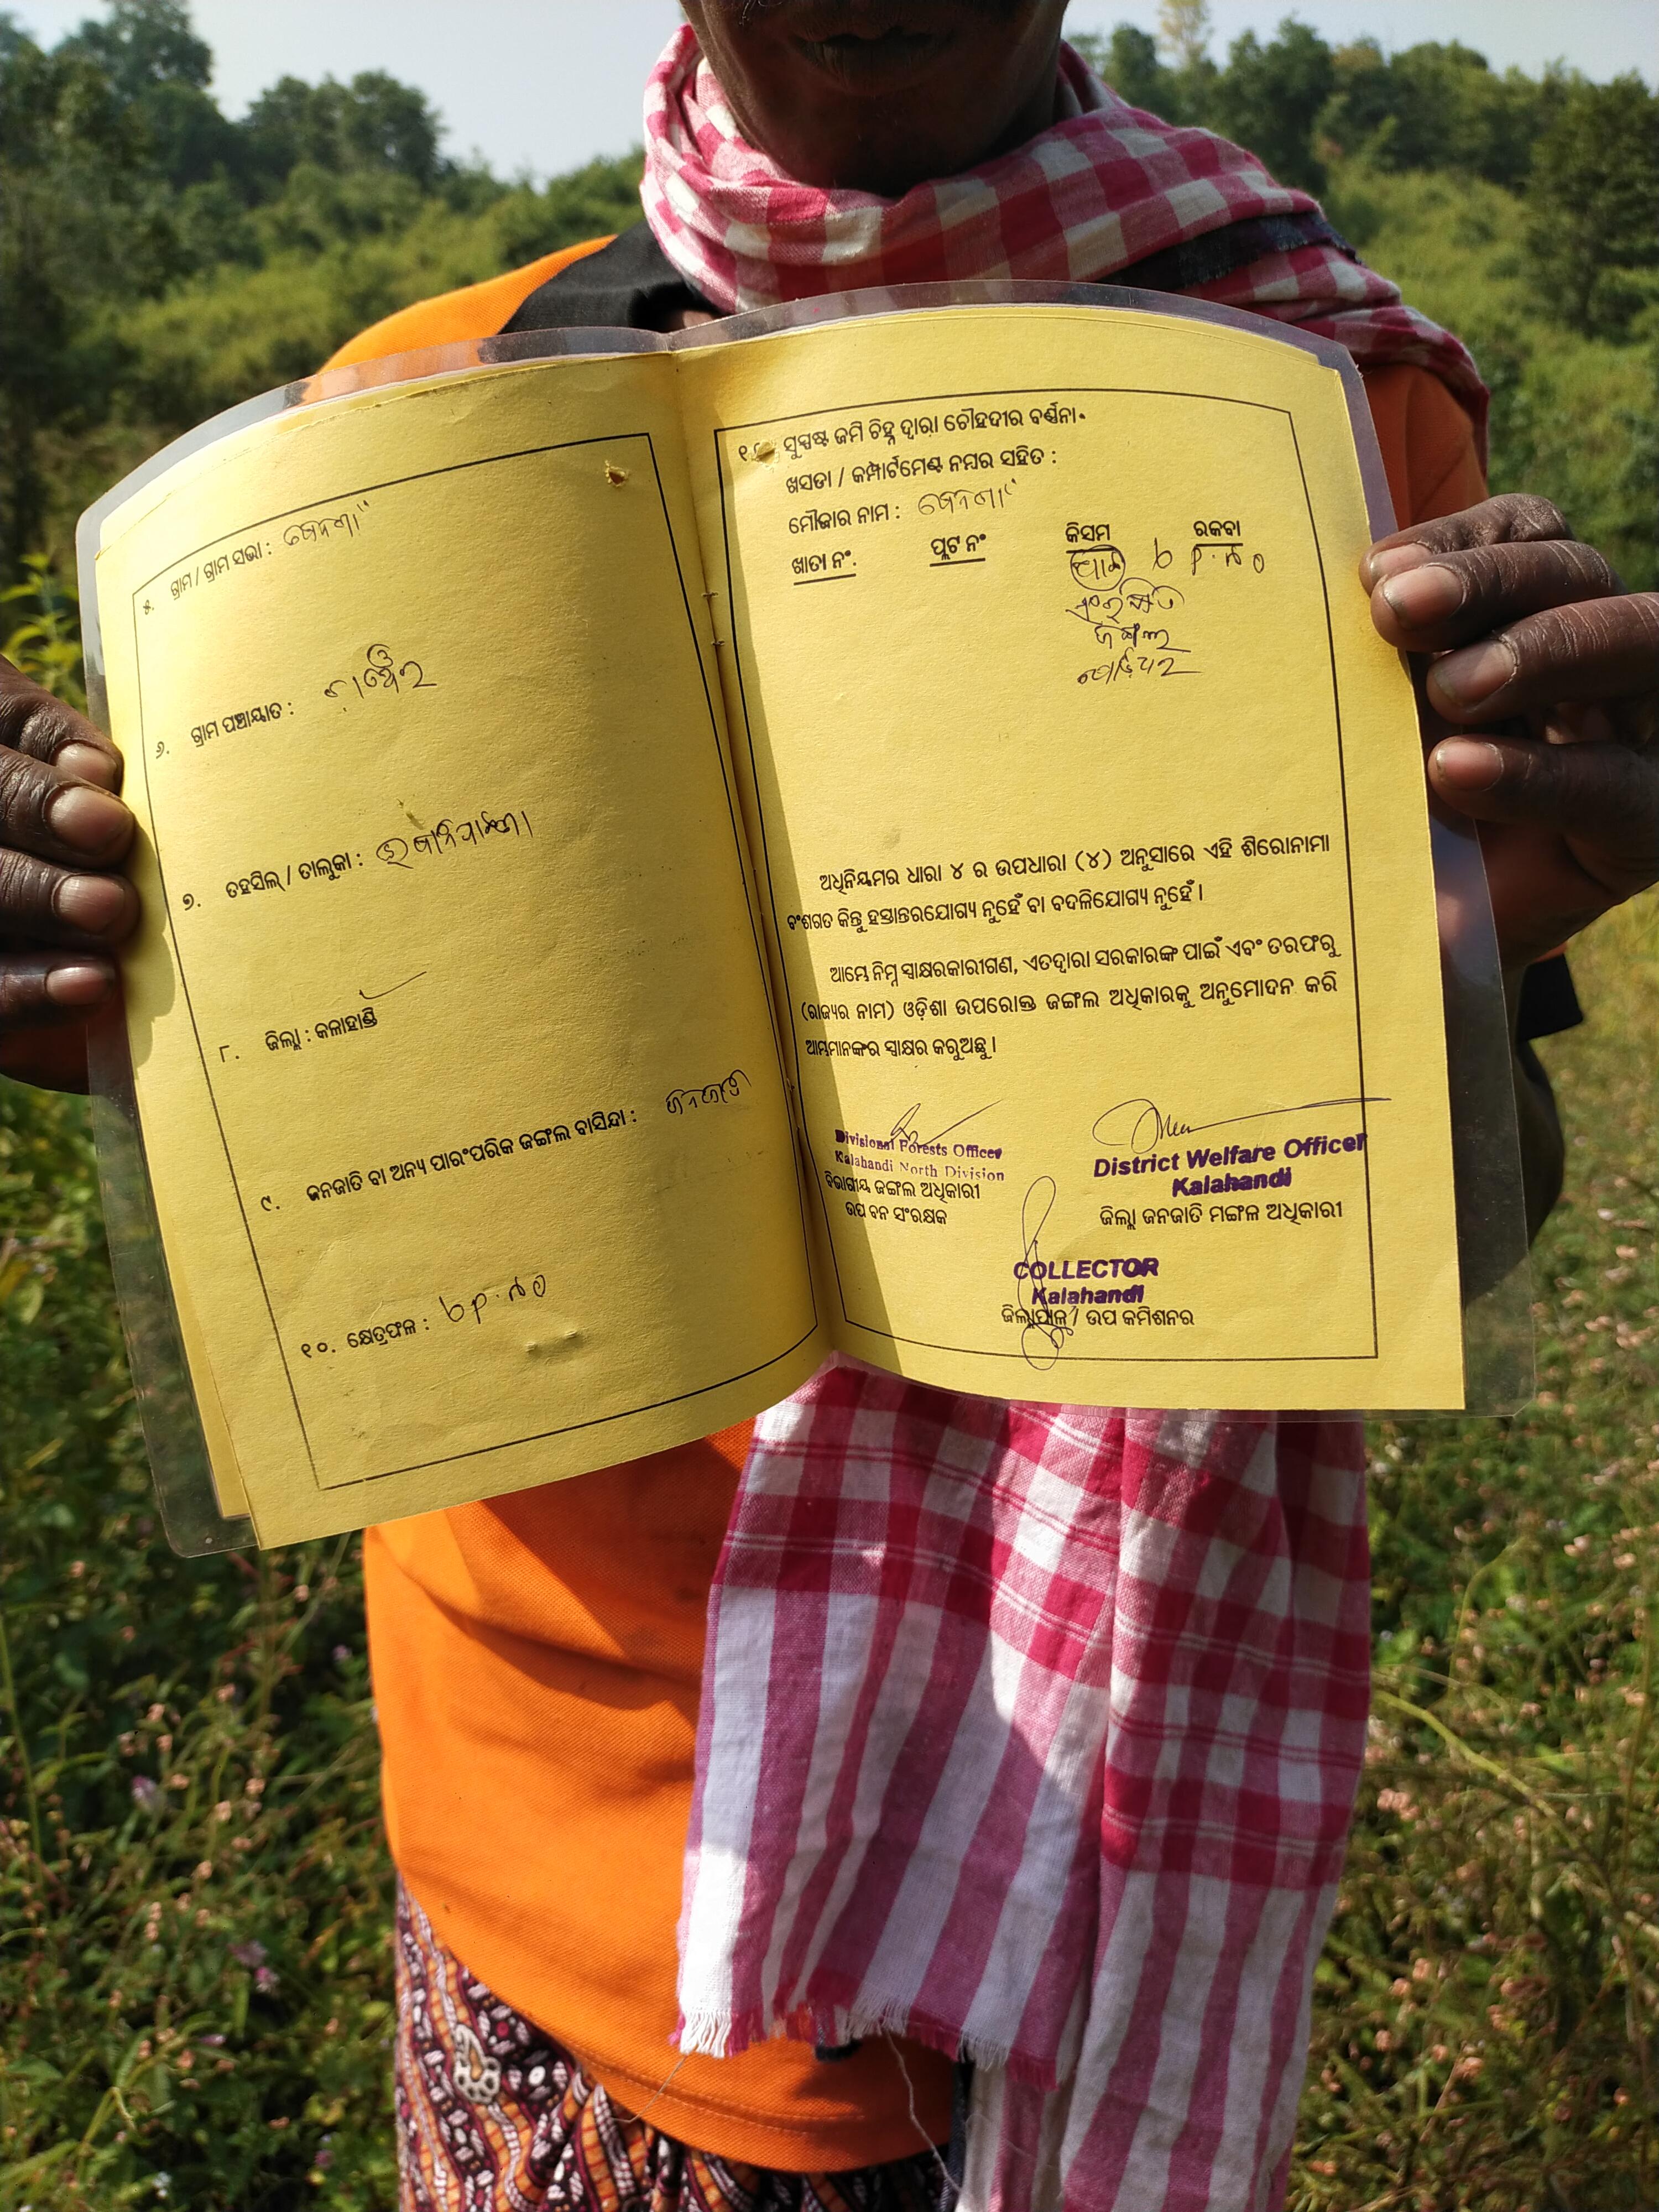 ୫. ଗ୍ରାମ / ଗ୍ରାମ ସଭା :
୬. ଗ୍ରାମ ପଞ୍ଚାୟାତ :
୭. ତହସିଲ୍ / ତାଲୁକା : ଭବାନିପାଟଣା
୮. ଜିଲ୍ଲା : କଳାହାଣ୍ଡି
୯. ଜନଜାତି ବା ଅନ୍ୟ ପାରଂପରିକ ଜଙ୍ଗଲ ବାସିନ୍ଦା : ଜନଜାତି
୧୦. କ୍ଷେତ୍ରଫଳ :
ସୁସ୍ପଷ୍ଟ ଜମି ଚିହ୍ନ ଦ୍ୱାରା ଚୌହଦୀର ବର୍ଣ୍ଣନା
ଖସଡା / କମ୍ପାର୍ଟମେଣ୍ଟ ନମ୍ବର ସହିତ :
ମୌଜାର ନାମ :
ଖାତା ନଂ. ପ୍ଲଟ ନଂ କିସମ ରକବା
ସଂରକ୍ଷିତ
ଜଙ୍ଗଲ
ଅଧିନିୟମର ଧାରା ୪ ର ଉପଧାରା (୪) ଅନୁସାରେ ଏହି ଶିରୋନାମା
ବଂଶଗତ କିନ୍ତୁ ହସ୍ତାନ୍ତରଯୋଗ୍ୟ ନୁହେଁ ବା ବଦଳିଯୋଗ୍ୟ ନୁହେଁ ।
ଆମ୍ଭେ ନିମ୍ନ ସ୍ୱାକ୍ଷରକାରୀଗଣ, ଏତଦ୍ୱାରା ସରକାରଙ୍କ ପାଇଁ ଏବଂ ତରଫରୁ
(ରାଜ୍ୟର ନାମ) ଓଡ଼ିଶା ଉପରୋକ୍ତ ଜଙ୍ଗଲ ଅଧିକାରକୁ ଅନୁମୋଦନ କରି
ଆମ୍ଭମାନଙ୍କର ସ୍ୱାକ୍ଷର କରୁଅଛୁ ।
Divisional Forests Officer
Kalahandi North Division
ବିଭାଗୀୟ ଜଙ୍ଗଲ ଅଧିକାରୀ
ଉପ ବନ ସଂରକ୍ଷକ
District Welfare Officer
Kalahandi
ଜିଲ୍ଲା ଜନଜାତି ମଙ୍ଗଳ ଅଧିକାରୀ
COLLECTOR
Kalahandi
ଜିଲ୍ଲାପାଳ / ଉପ କମିଶନର